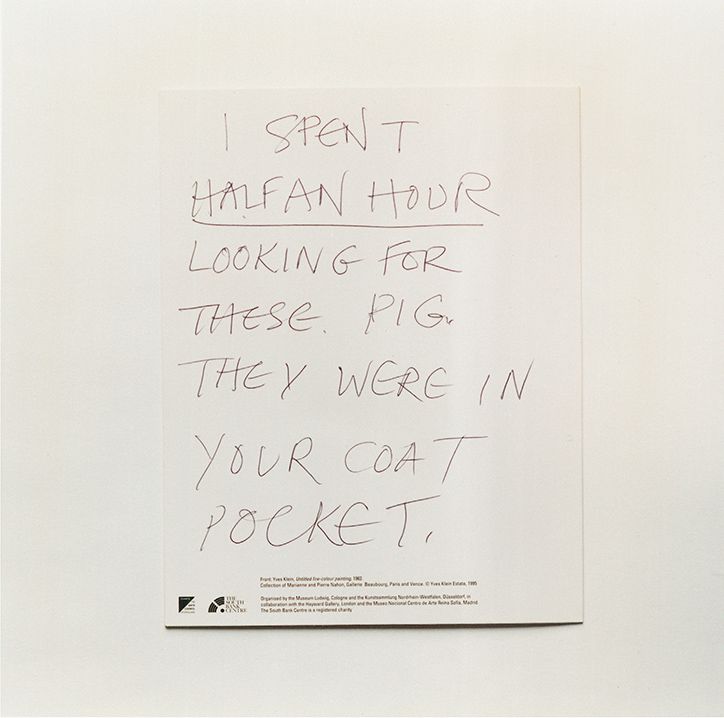 I SPENT
HALF AN HOUR
LOOKING FOR
THESE. PIG.
THEY WERE IN
YOUR COAT
POCKET.
Front: Yves Klein, Untitled fire-colour painting, 1962
Collection of Marianne and Pierre Nahon, Gallerie Beaubourg, Paris and Vence. © Yves Klein Estate, 1995
Organised by the Museum Ludwig, Cologne and the Kunstsammlung Nordrhein-Westfalen, Düsseldorf, in
collaboration with the Hayward Gallery, London and the Museo Nacional Centro de Arte Reina Sofia, Madrid
The South Bank Centre is a registered charity
THE
SOUTH
BANK
CENTRE